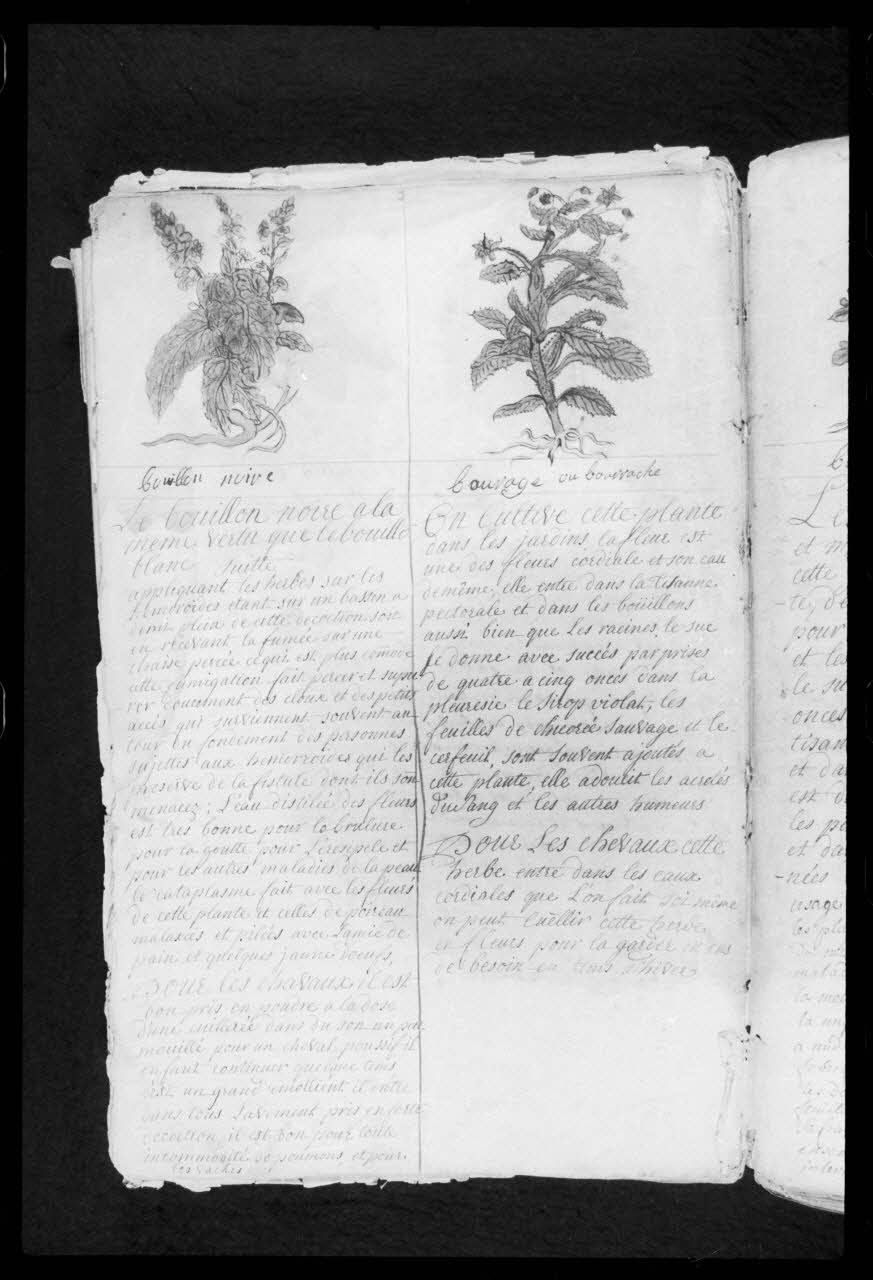 bouillon noire
Le bouillon noire a la
même vertu que le bouillo
blanc suitte
appliquant les herbes sur les
hemoroïdes etant sur un bassin a
demi plein de cette decoction soit
en recevant la fumée sur une
chaise percée ce qui est plus comode
cette fumigation fait percer et supu
rer doucement des cloux et des petits
accès qui surviennent souvent au
tour du fondement des personnes
sujettes aux hemorroïdes qui les
preserve de la fistule dont ils son
menacez; L'eau distilée des fleurs
est tres bonne pour la brulure
pour la goutte pour L'eresipele et
pour les autres maladies de la peau
le cataplasme fait avec les fleurs
de cette plante et celles de poireau
malaxées et pilées avec Lamie de
pain et quelques jaune doeufs,
Pour les chevaux il est
bon pris en poudre a la dose
d'une cuillerée dans du son un peu
mouillé pour un cheval poussif il
en faut continuer quelque tems
c'est un grand emollient il entre
dans tous Lavement pris en forte
decoction, il est bon pour toute
incommodité de poumons et pour
les vaches
bourage ou bourrache
On Cultive cette plante
dans les jardins la fleur est
une des fleurs cordiale et son eau
de même, elle entre dans la tisanne
pectorale et dans les boüillons
aussi bien que Les racines, le suc
se donne avec succès par prises
de quatre a cinq onces dans la
pleuresie le sirop violat, les
feuilles de chicorée sauvage et le
cerfeuil, sont souvent ajoutés a
cette plante, elle adoucit les acretés
du sang et les autres humeurs
Pour Les chevaux cette
herbe entre dans les eaux
cordiales que L'on fait soi même
on peut cuëllir cette herbe
en fleurs pour la garder en cas
de besoin en tems d'hiver
Le
et m
cette
pour
et les
le su
onces
tisan
et da
est
les po
et da
-nées
usage
les pla